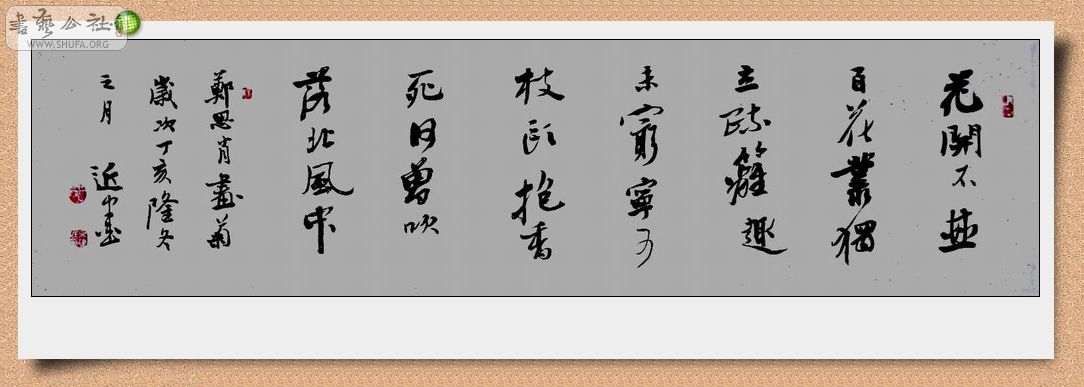 書藝公社
WWW.SHUFA.ORG
花開不並
百花叢獨
立疏籬趣
未窮寧可
枝頭抱香
死何曾吹
落北風中
鄭思肖畫菊
歲次丁亥隆冬
之月 近中書